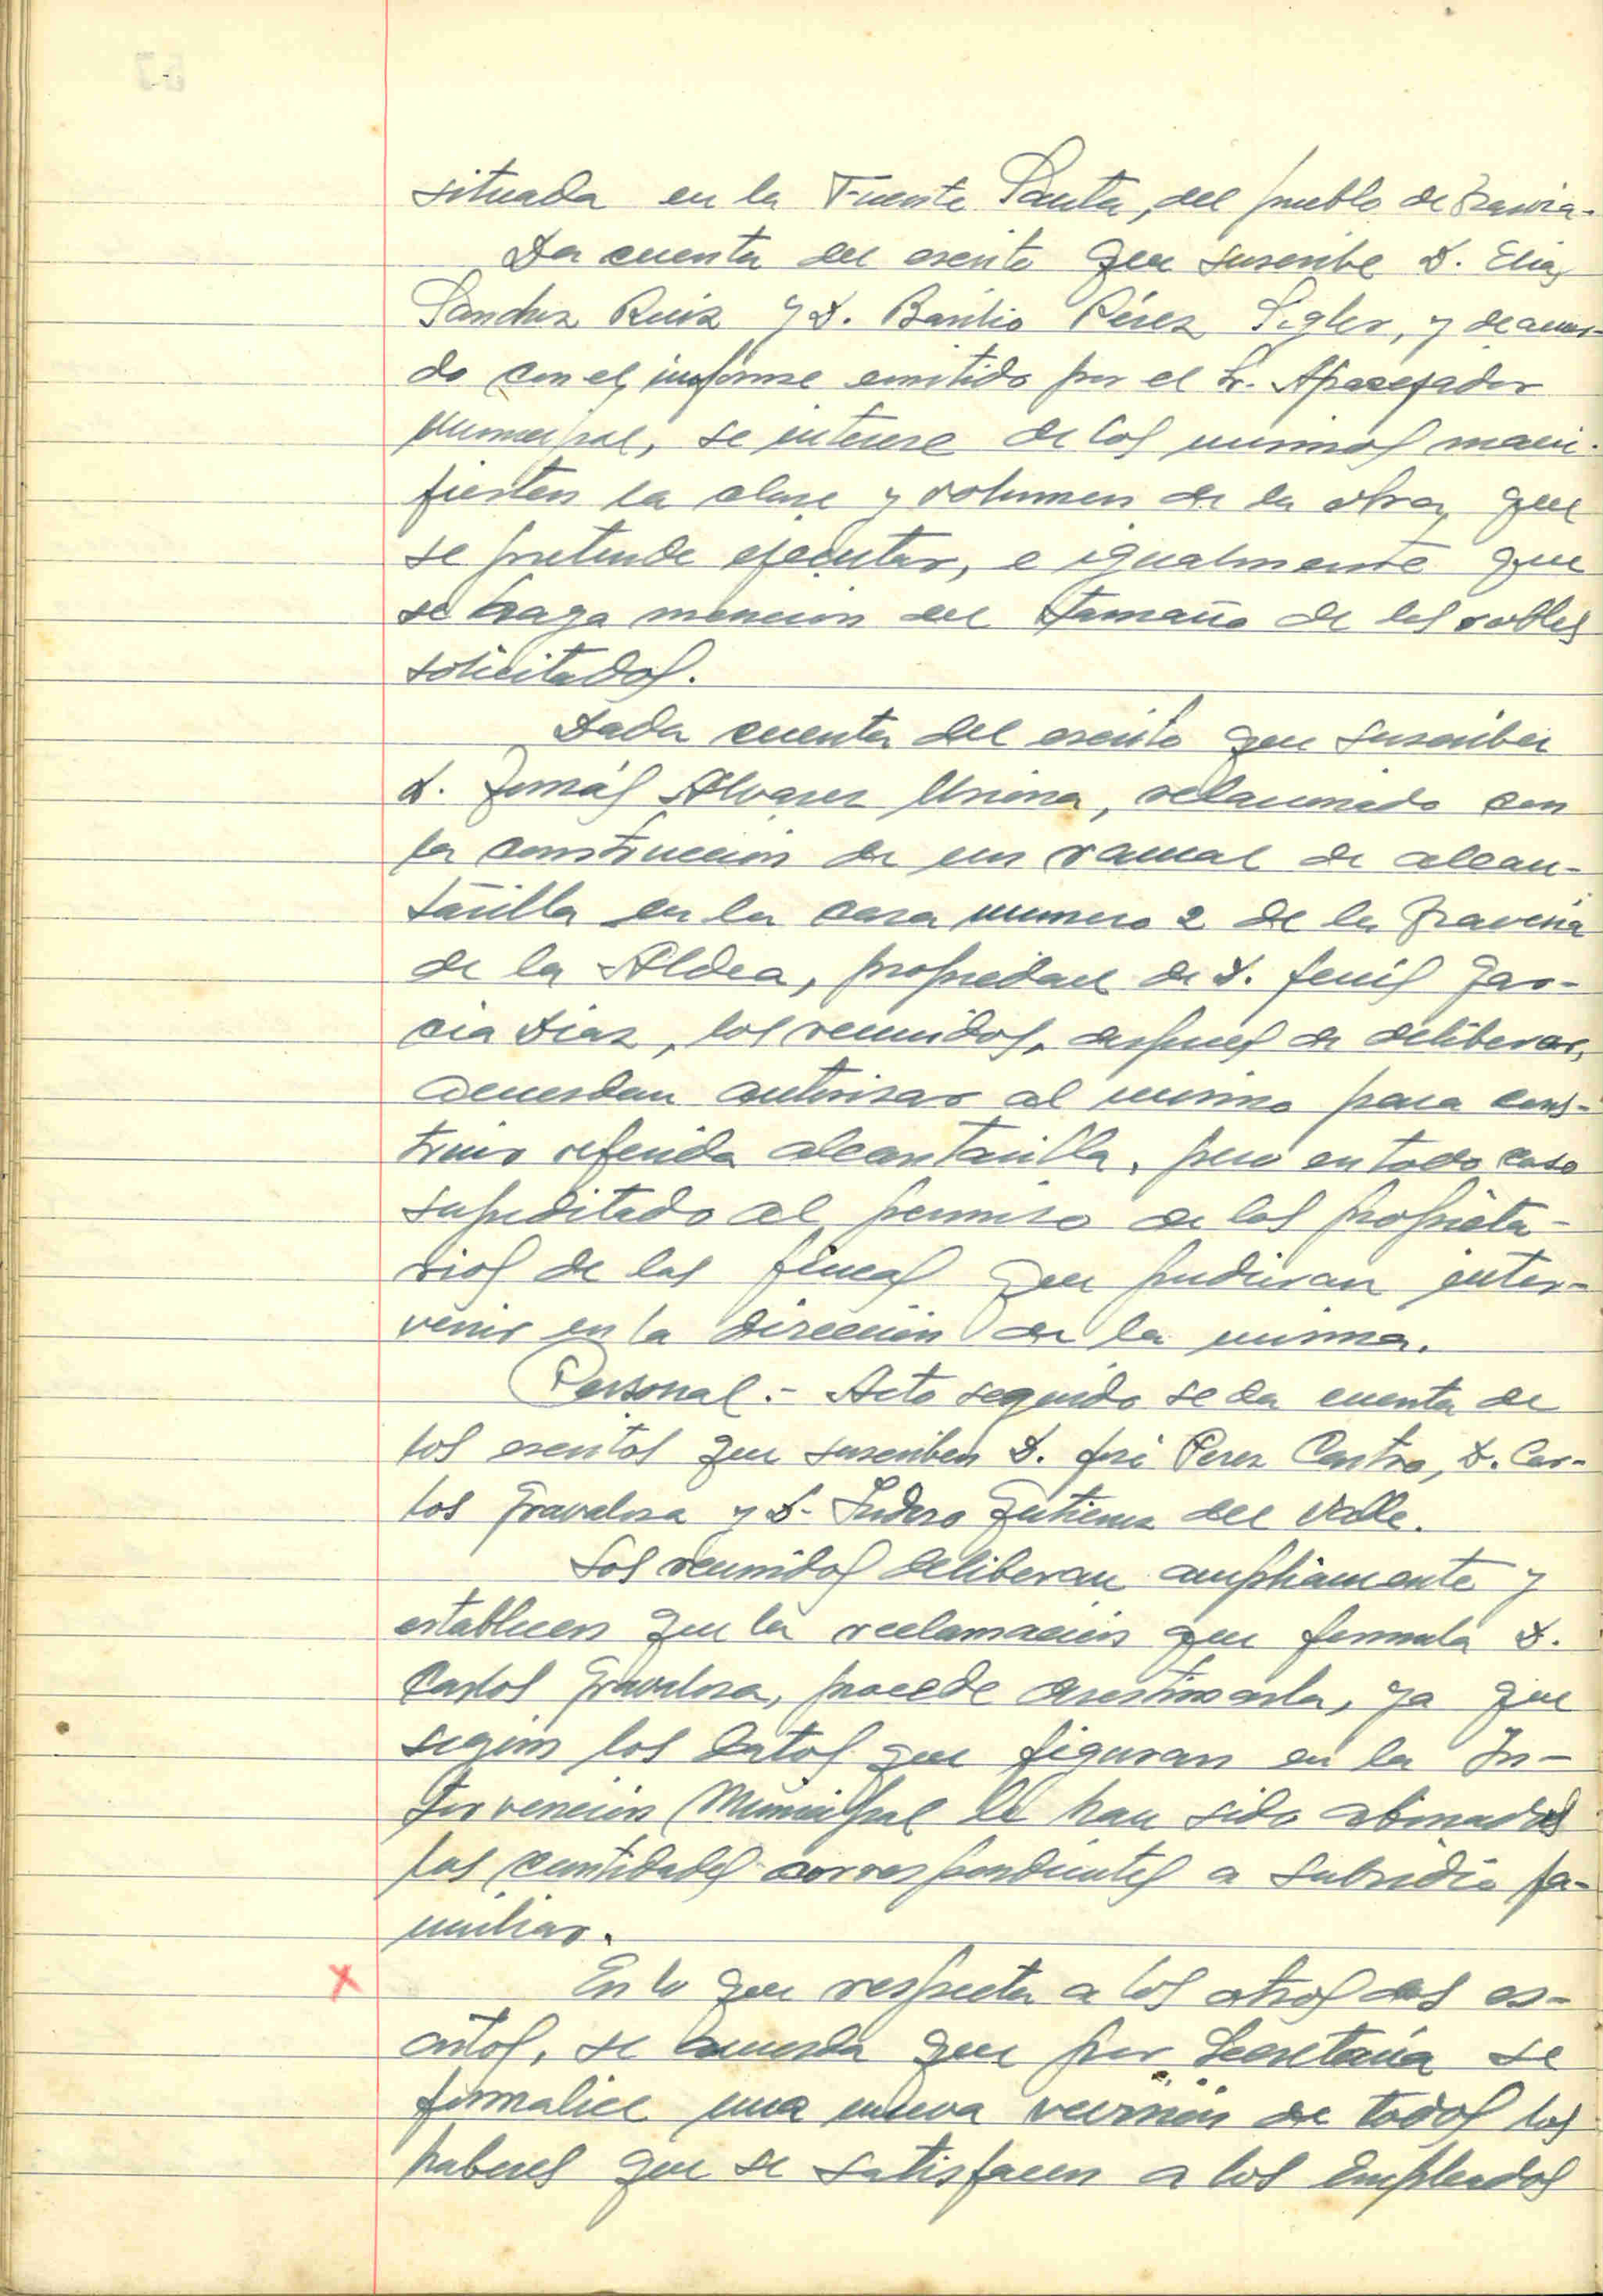 situada en la Fuente Santa, del pueblo de
Da cuenta del escrito que suscribe D. Elias
Sanchez Ruiz y D. Basilio Pérez Sigler, y de acuer-
do con el informe emitido por el Sr. Aparejador
Municipal, se interese de los mismos mani-
fiesten la clase y volumen de la obra, que
se pretende ejecutar, e igualmente que
se haga mencion del tamaño de los robles
solicitados.
Dada cuenta del escrito que suscribe
D. Tomás Alvarez, relacionado con
la construccion de un ramal de alcan-
tarilla en la casa numero 2 de la Travesia
de la Aldea, propiedad de D. Jesús Gar-
cia Diaz, los reunidos, despues de deliberar,
acuerdan autorizar al mismo para cons-
truir referida alcantarilla, pero en todo caso
supeditado al permiso de los propieta-
rios de las fincas que pudieran inter-
venir en la dirección de la misma.
Personal.- Acto seguido se da cuenta de
los escritos que suscriben D. José Perez Castro, D. Car-
los Gravalosa y D. Isidoro Gutierrez del Valle.
Los reunidos deliberan ampliamente y
establecen que la reclamación que formula D.
Carlos Gravalosa, procede desestimarla, ya que
según los datos que figuran en la In-
tervención Municipal le han sido abonadas
las cantidades correspondientes a subsidio fa-
miliar.
X
En lo que respecta a los otros dos es-
critos, se acuerda que por Secretaría se
formalice una nueva revisión de todos los
haberes que se satisfacen a los empleados